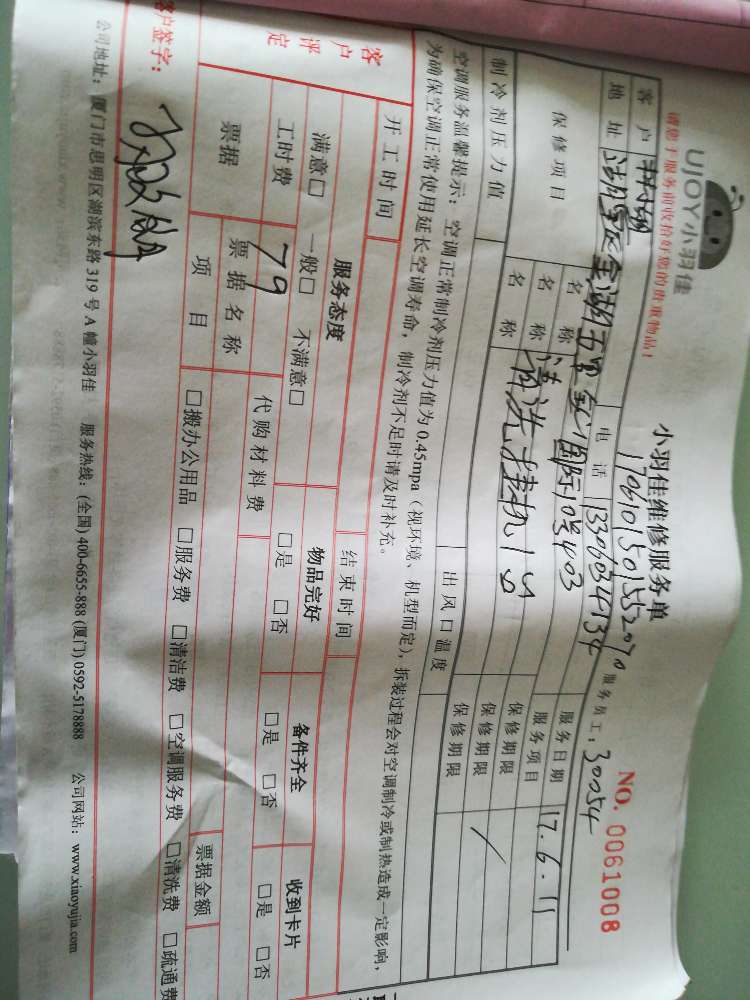 UJOY小羽佳
小羽佳维修服务单
NO. 0061008
请您于服务前收拾好您的贵重物品!
服务员工: 30054
客户
电话
服务日期 17.6.11
地址
保修项目
名称
服务项目
名称 清洗挂机1台
保修期限
名称
保修期限
制冷剂压力值
出风口温度
保修期限
空调服务温馨提示: 空调正常制冷剂压力值为0.45mpa (视环境、机型而定), 拆装过程会对空调制冷或制热造成一定影响,
为确保空调正常使用延长空调寿命, 制冷剂不足时请及时补充。
开工时间
结束时间
客户评定
服务态度
物品完好
备件齐全
收到卡片
满意□ 一般□ 不满意□
□是 □否
□是 □否
□是 □否
工时费 79
代购材料费
票据
票据名称
票据金额
项目
□搬办公用品 □服务费 □清洁费 □空调服务费 □清洗费 □疏通费
客户签字:
公司地址: 厦门市思明区湖滨东路319号A幢小羽佳 服务热线: (全国) 400-6655-888 (厦门) 0592-5178888 公司网站: www.xiaoyujia.com